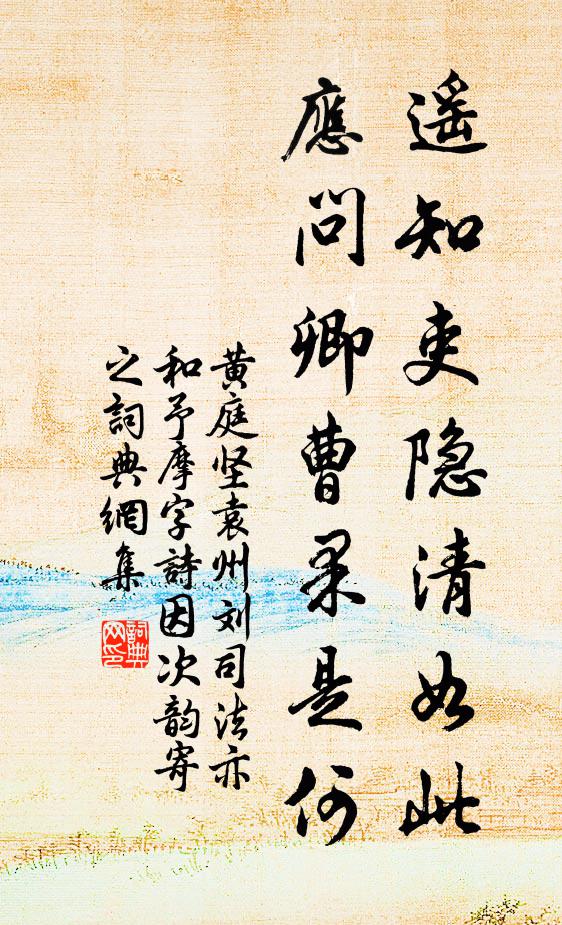 遥知吏隐清如此
應問卿曹果是何
黄庭坚袁州刘司法亦
和予摩字詩因次韵寄
之詞典網集
詞典
网印